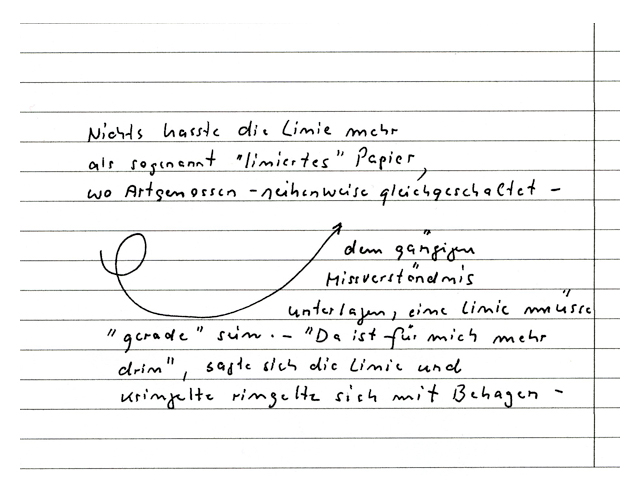 Nichts hasste die Linie mehr
als sogenannt "liniertes" Papier,
wo Artgenossen - reihenweise gleichgeschaltet -
dem gängigen
Missverständnis
unterlagen, eine Linie müsse
"gerade" sein. - "Da ist für mich mehr
drin", sagte sich die Linie und
kringelte ringelte sich mit Behagen -